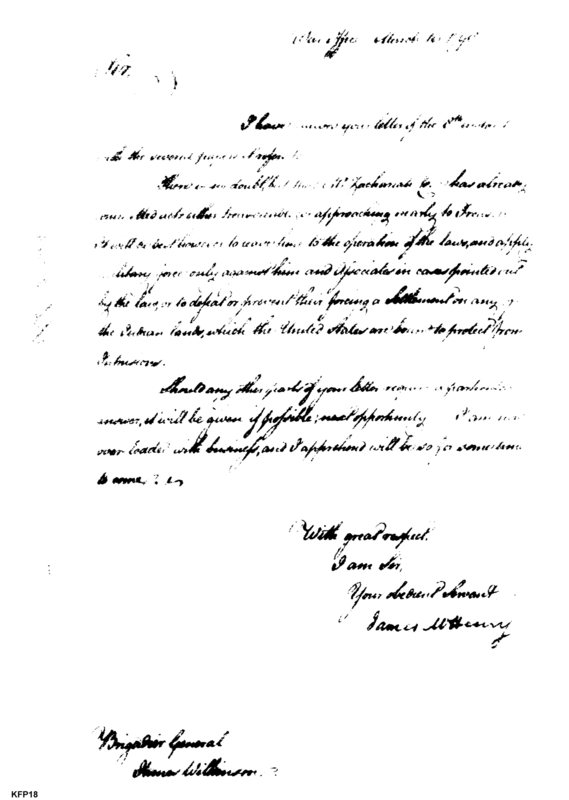 War Office March
Sir,
I have your letter of the 8th
with the several papers
There is no doubt, but Zachariah Cox has already
acts either approaching nearly to
It will be best however to the operation of the laws, and apply
military force only against him and associates in cases pointed out
by the law, or to defeat or prevent their forcing a Settlement on any
the Indian lands, which the United States are bound to protect from
Intrusions.
Should any other parts of your letter require a particular
answer, it will be given if possible, next opportunity I am now
over loaded with business, and I apprehend will be so for some time
to come.
With great respect.
I am Sir,
Your obedient Servant
James McHenry
Brigadier General
James Wilkinson.
KFP18